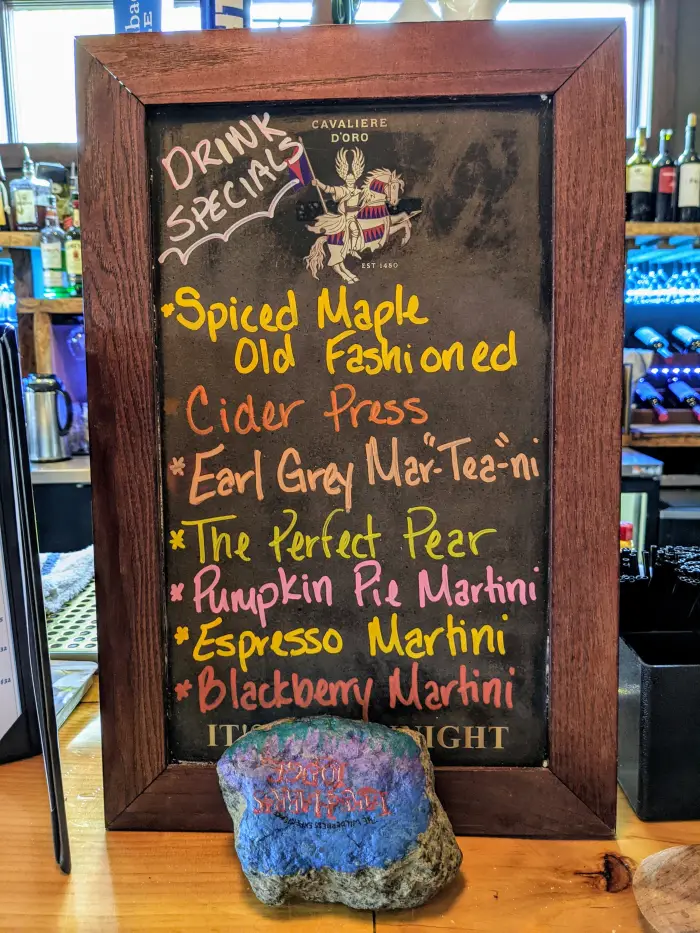 DRINK
SPECIALS
CAVALIERE
D'ORO
EST 1480
*Spiced Maple
Old Fashioned
Cider Press
*Earl Grey Mar-"Tea"-ni
*The Perfect Pear
*Pumpkin Pie Martini
*Espresso Martini
*Blackberry Martini
IT'S
IGHT